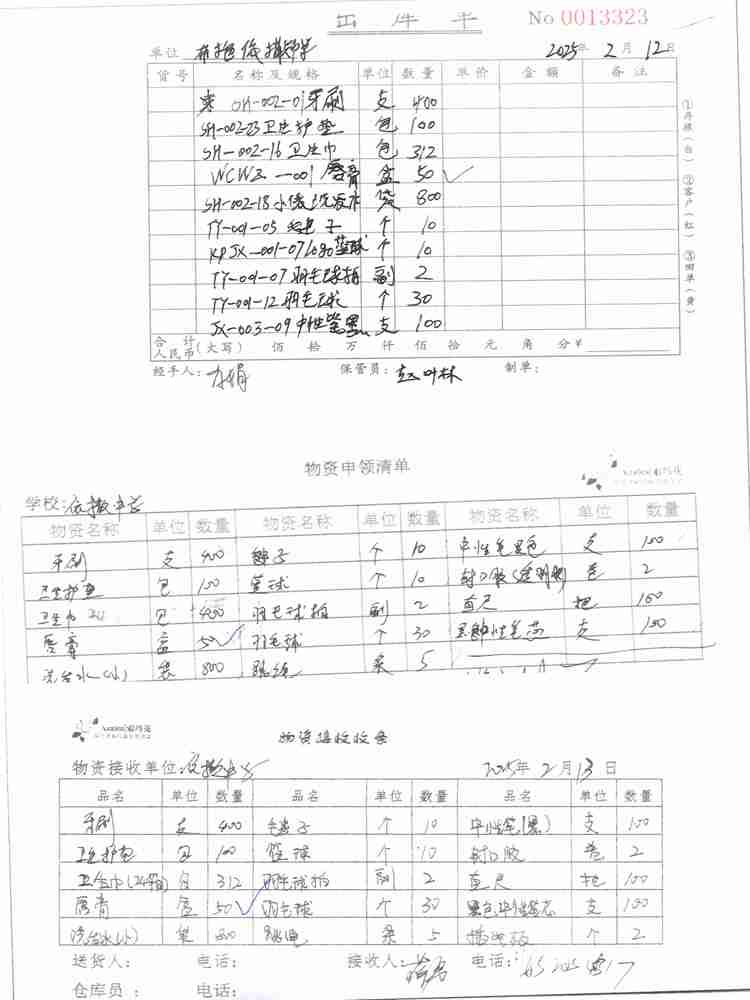 出库单 No 0013323
单位 2025年 2月 12日
货号 名称及规格 单位 数量 单价 金额 备注
SH-002-01牙刷 支 400
SH-002-23卫生护垫 包 100
SH-002-16卫生巾 包 312
-001唇膏 盒 50
SH-002-18 洗发水 袋 800
TY-001-05 毛毽子 个 10
KPJX-001-07logo篮球 个 10
TY-001-07羽毛球拍 副 2
TY-001-12羽毛球 个 30
JX-003-09中性笔黑 支 100
合计人民币(大写) 佰 拾 万 仟 佰 拾 元 角 分¥
经手人: 保管员: 制单:
①存根(白) ②客户(红) ③回单(黄)
物资申领清单
学校:
物资名称 单位 数量 物资名称 单位 数量 物资名称 单位 数量
牙刷 支 400 毽子 个 10 中性笔黑色 支 100
卫生护垫 包 100 篮球 个 10 封口胶 卷 2
卫生巾 包 400 羽毛球拍 副 2 直尺 把 100
唇膏 盒 50 羽毛球 个 30 支 100
洗发水(小) 袋 800 跳绳 条 5
物资接收收条
物资接收单位: 2025年 2月 13日
品名 单位 数量 品名 单位 数量 品名 单位 数量
牙刷 支 400 毛毽子 个 10 中性笔(黑) 支 100
卫生护垫 包 100 篮球 个 10 封口胶 卷 2
卫生巾 包 312 羽毛球拍 副 2 直尺 把 100
唇膏 盒 50 羽毛球 个 30 黑色中性笔芯 支 100
洗发水(小) 袋 800 跳绳 条 5 个 2
送货人: 电话: 接收人: 电话:
仓库员: 电话: